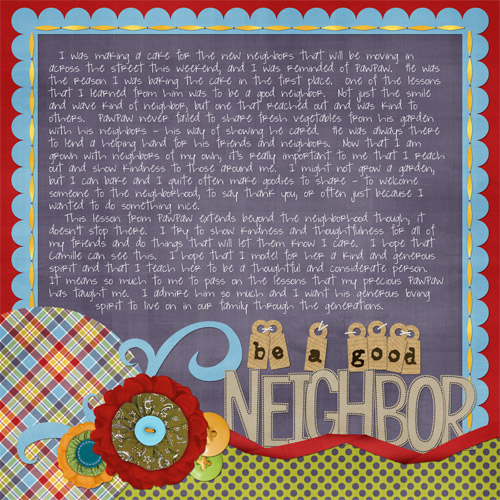 I was making a cake for the new neighbors that will be moving in
across the street this weekend, and I was reminded of PawPaw. He was
the reason I was baking the cake in the first place. One of the lessons
that I learned from him was to be a good neighbor. Not just the smile
and wave kind of neighbor, but one that reached out and was kind to
others. PawPaw never failed to share fresh vegetables from his garden
with his neighbors - his way of showing he cared. He was always there
to lend a helping hand for his friends and neighbors. Now that I am
grown with neighbors of my own, it's really important to me that I reach
out and show kindness to those around me. I might not grow a garden,
but I can bake and I quite often make goodies to share - to welcome
someone to the neighborhood, to say thank you, or often just because I
wanted to do something nice.
This lesson from PawPaw extends beyond the neighborhood though, it
doesn't stop there. I try to show kindness and thoughtfulness for all of
my friends and do things that will let them know I care. I hope that
Camille can see this. I hope that I model for her a kind and generous
spirit and that I teach her to be a thoughtful and considerate person.
It means so much to me to pass on the lessons that my precious PawPaw
has taught me. I admire him so much and I want his generous loving
spirit to live on in our family through the generations.
be a good
NEIGHBOR